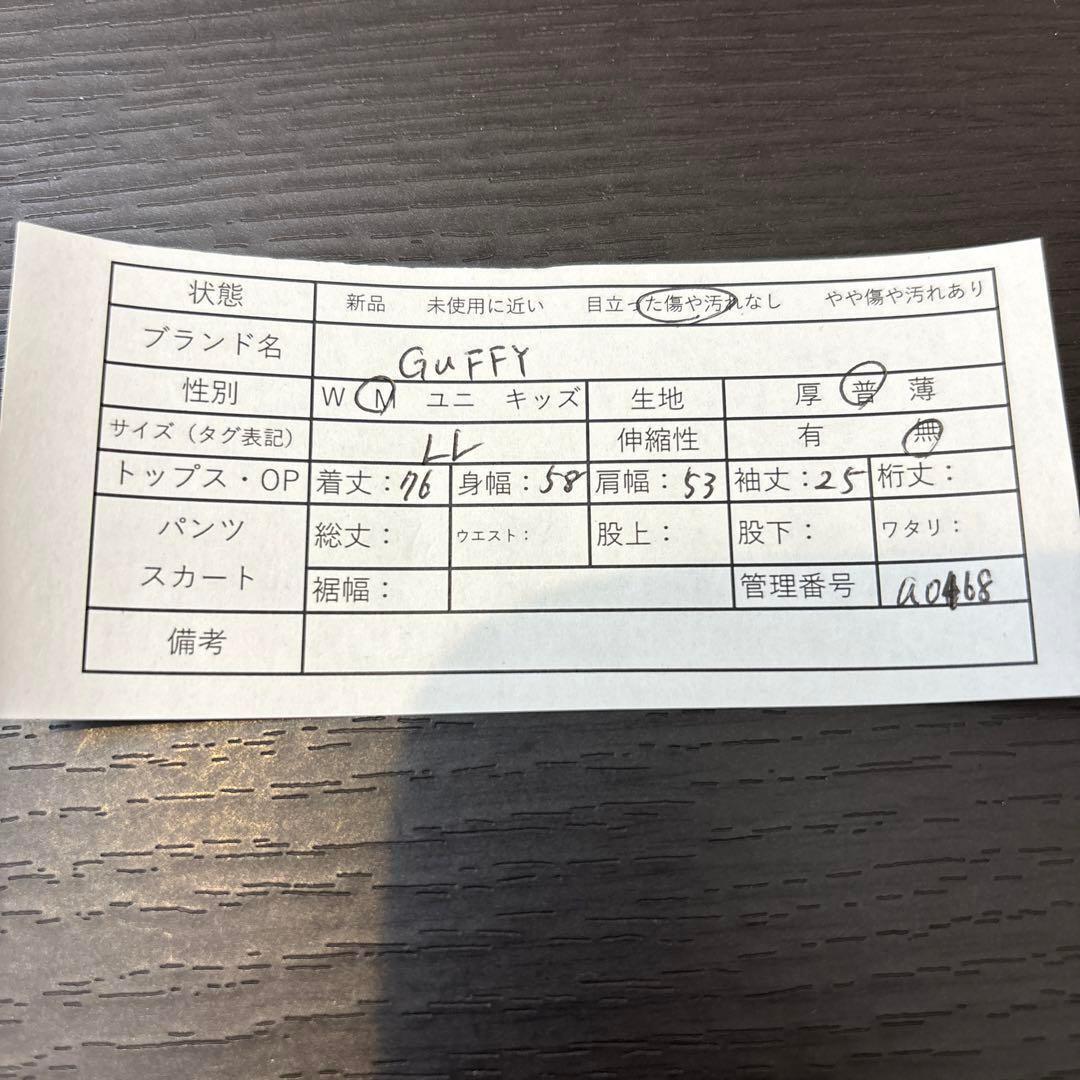 状態 新品 未使用に近い 目立った傷や汚れなし やや傷や汚れあり
ブランド名 GUFFY
性別 W M ユニ キッズ 生地 厚 普 薄
サイズ（タグ表記） LL 伸縮性 有 無
トップス・OP 着丈：76 身幅：58 肩幅：53 袖丈：25 裄丈：
パンツ 総丈： ウエスト： 股上： 股下： ワタリ：
スカート 裾幅： 管理番号 a0468
備考